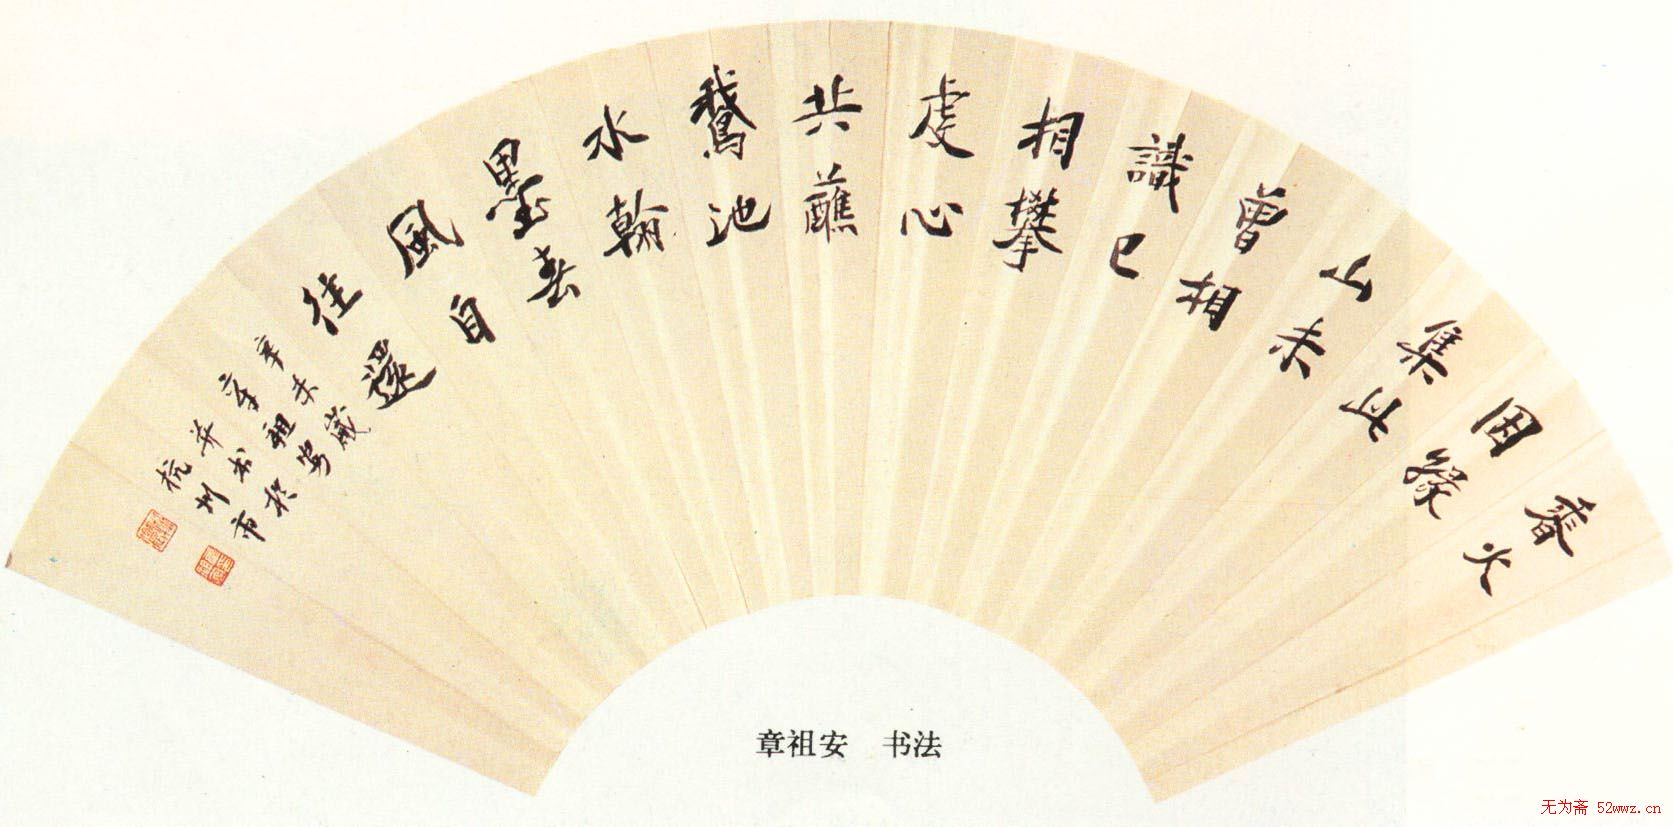 香火
因緣
集此
山未
曾相
識已
相攀
虔心
共蘸
鵝池
水翰
墨春
風自
往還
辛未歲
章祖安
并书於
杭州市
章祖安 书法
无为斋 52wwz.cn